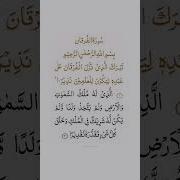 سُورَةُ الْفُرْقَانِ
بِسْمِ اللَّهِ الرَّحْمَٰنِ الرَّحِيمِ
تَبَارَكَ الَّذِي نَزَّلَ الْفُرْقَانَ عَلَىٰ
عَبْدِهِ لِيَكُونَ لِلْعَالَمِينَ نَذِيرًا
الَّذِي لَهُ مُلْكُ السَّمَاوَاتِ
وَالْأَرْضِ وَلَمْ يَتَّخِذْ وَلَدًا وَلَمْ
يَكُنْ لَهُ شَرِيكٌ فِي الْمُلْكِ وَخَلَقَ
كُلَّ شَيْءٍ فَقَدَّرَهُ تَقْدِيرًا